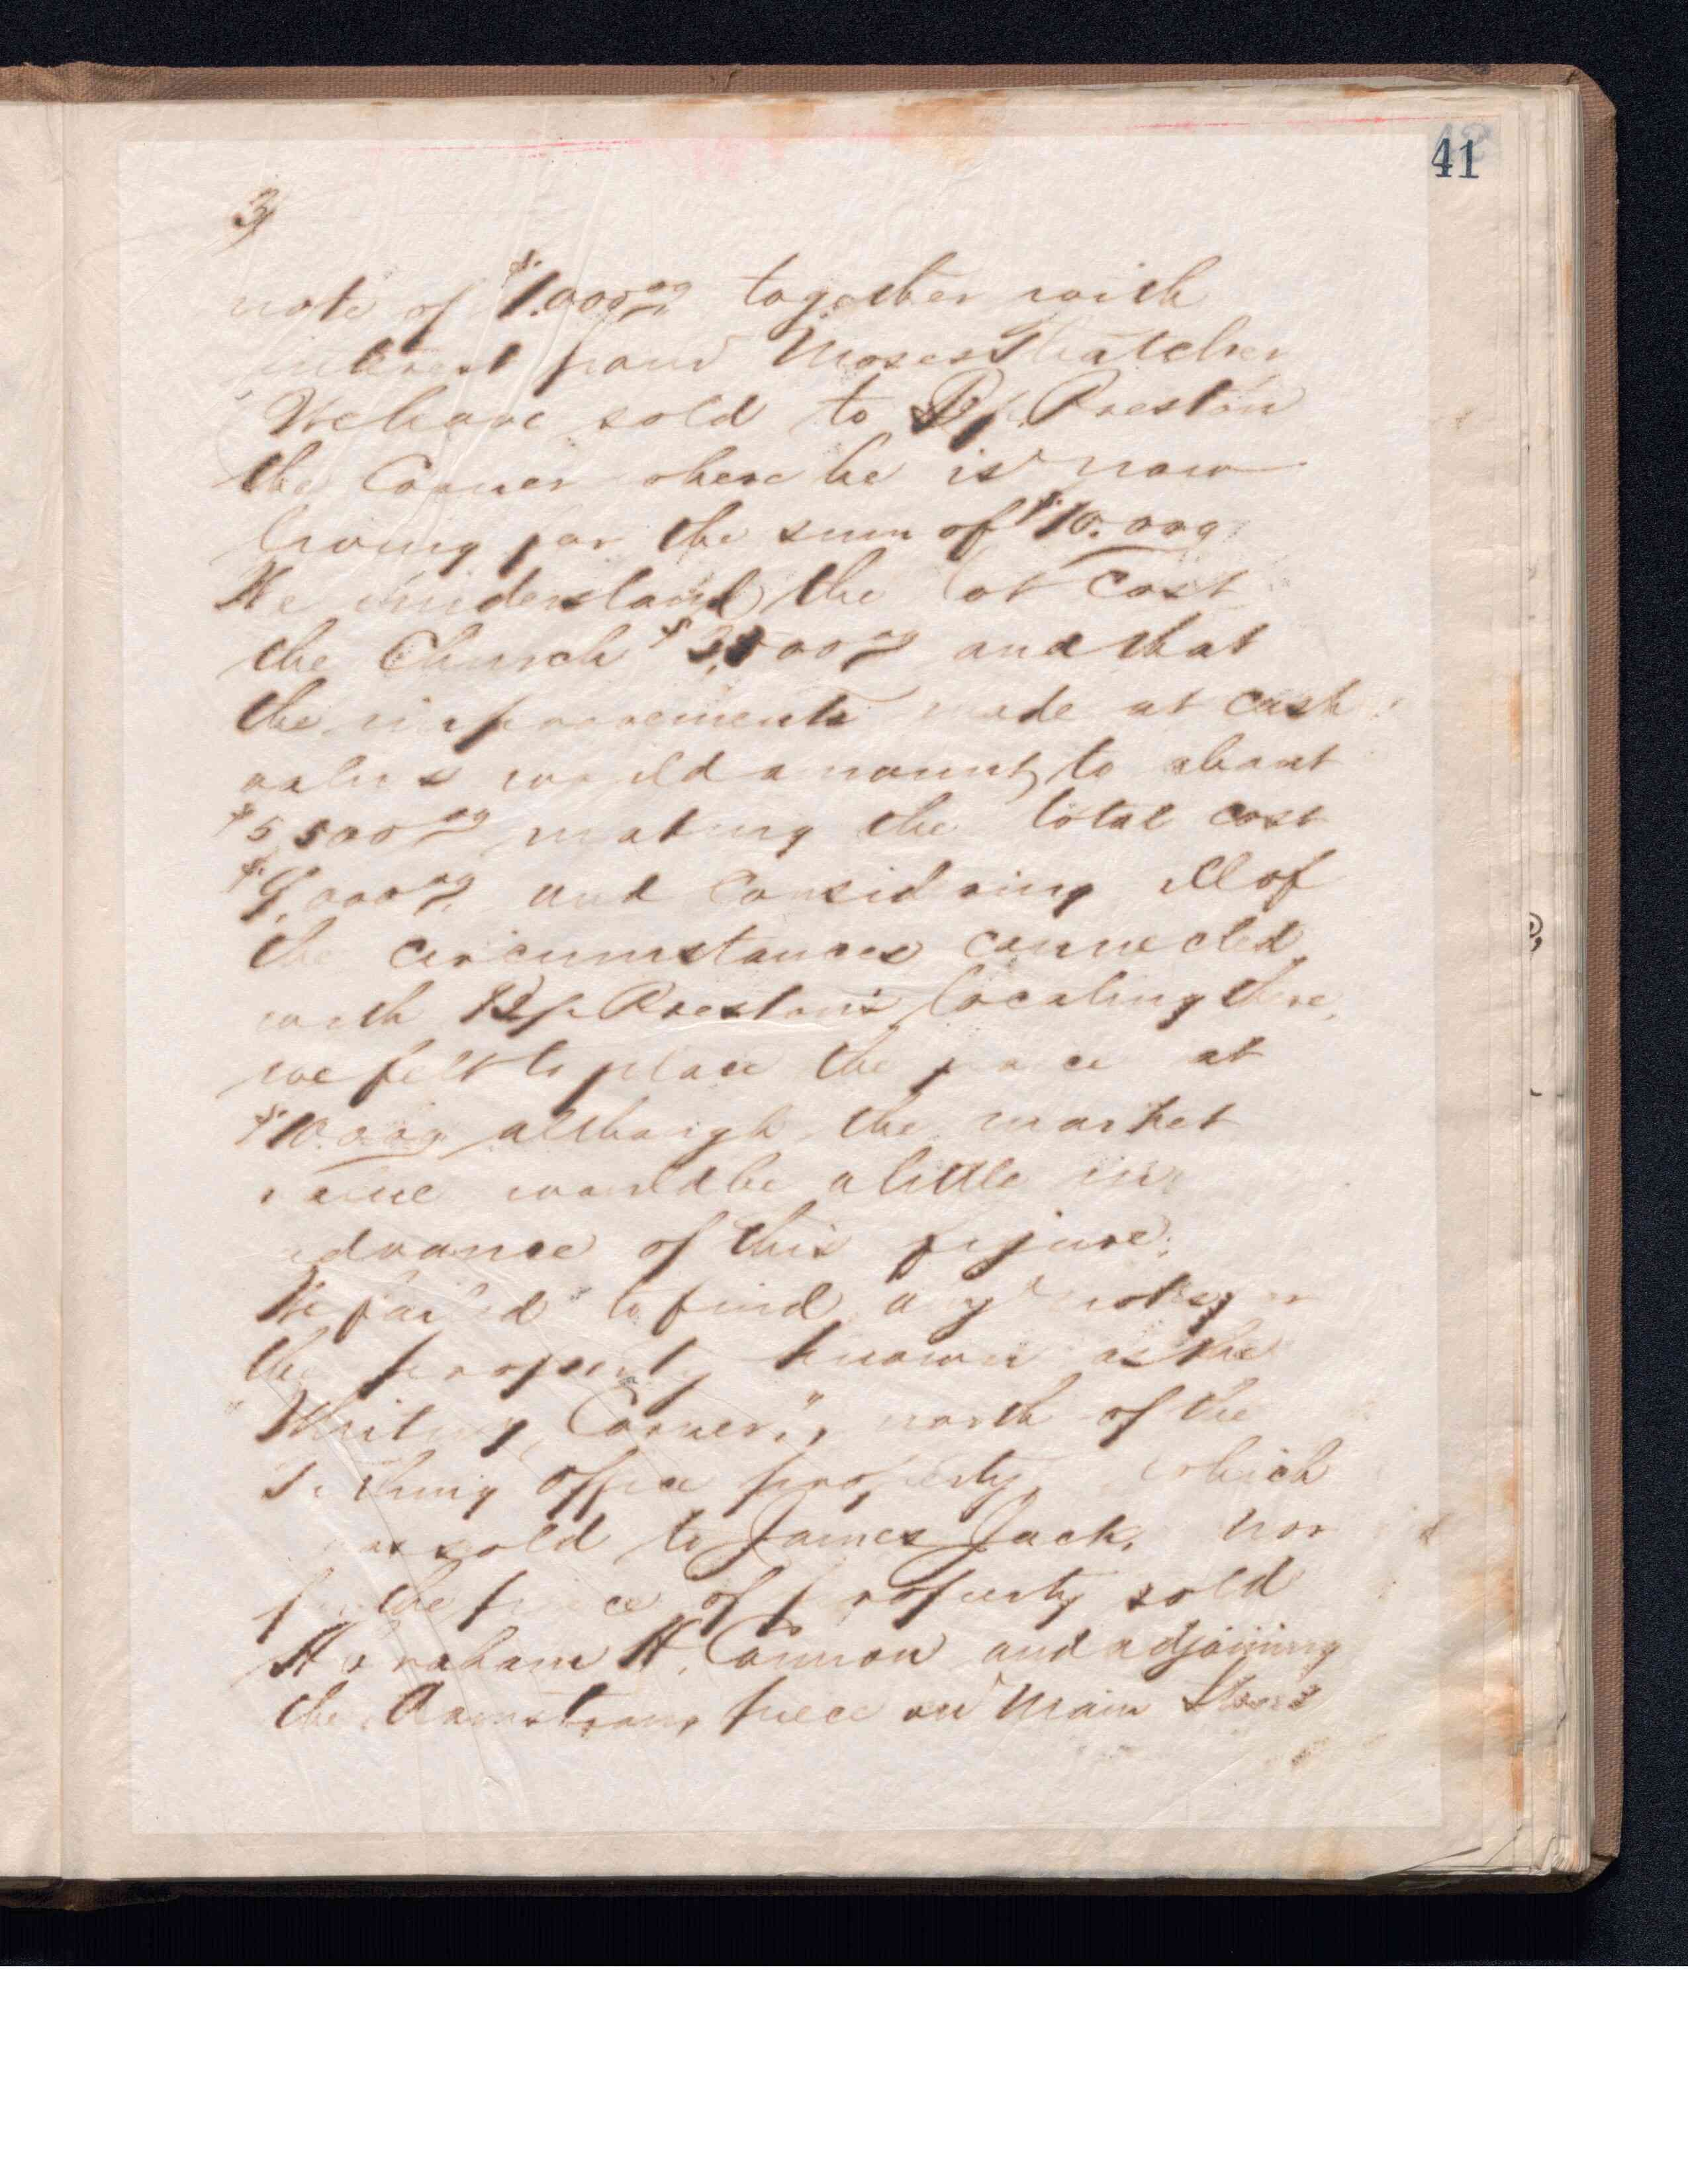 41
3/
note of $1.000.00 together with
interest from Moses Thatcher
We have sold to Bp. Preston
the Corner where he is now
living for the sum of $10.000
We understand the lot cost
the Church $3,500.00 and that
the improvements made at cash
values would amount to about
$5,500.00 making the total cost
$9,000.00, and Considering all of
the circumstances connected
with Bp Preston's locating there,
we felt to place the price at
$10.000 although the market
value would be a little in
advance of this figure.
We failed to find any notes, or
the property known as the
"Whitney Corner", north of the
Tithing Office property, which
was sold to James Jack, nor
for the piece of property sold
Abraham H. Cannon and adjoining
the Armstrong piece on Main Street